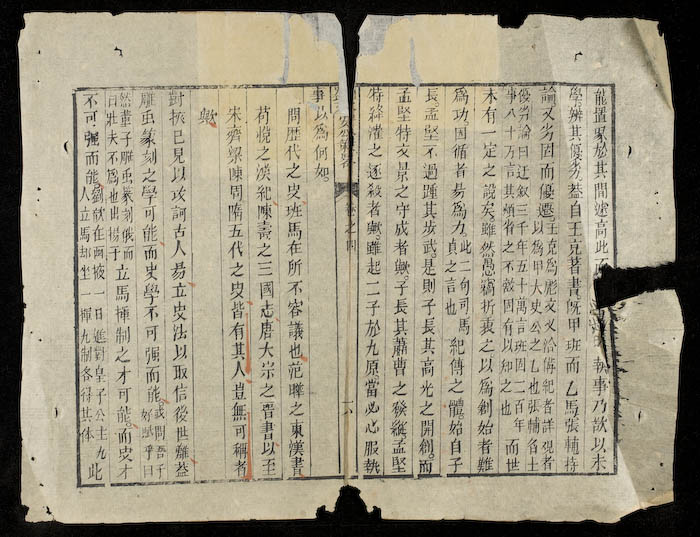 能置
於其間遽高此
執事乃欲以未
學辨其優劣蓋自王充著書既甲班而乙馬張輔持
論又劣固而優遷
王充爲彪文義浹備紀事詳觀者
以爲甲大史公之乙也張輔名士
優劣論曰遷叙三千年五十萬言班固二百年
事八十萬言其煩省之不敵固有以知之也
而世
未有一定之說矣雖然愚竊折衷之以爲創始者難
爲功因循者易爲力此二句司馬貞之言也紀傳之體始自子
長孟堅不過踵其步武是則子長其高光之開創而
孟堅特文景之守成者歟子長其蕭曹之發縱孟堅
特絳灌之逐殺者歟雖起二子於九原當必心服執
卷之四
六
事以爲何如
問歷代之史班馬在所不容議也范曄之東漢書
荀悅之漢紀陳壽之三國志唐太宗之晉書以至
宋齊梁陳周隋五代之史皆有其人豈無可稱者
歟
對掀己見以攻訶古人易立史法以取信後世難蓋
雕蟲篆刻之學可能而史學不可強而能
或問吾子
好賦乎曰
然童子雕蟲篆刻俄而
曰壯夫不爲也出揚子
立馬揮制之才可能而史才
不可強而能
劉敞在西掖一日進對皇子公主九
人立馬却坐一揮九制各得其体
此